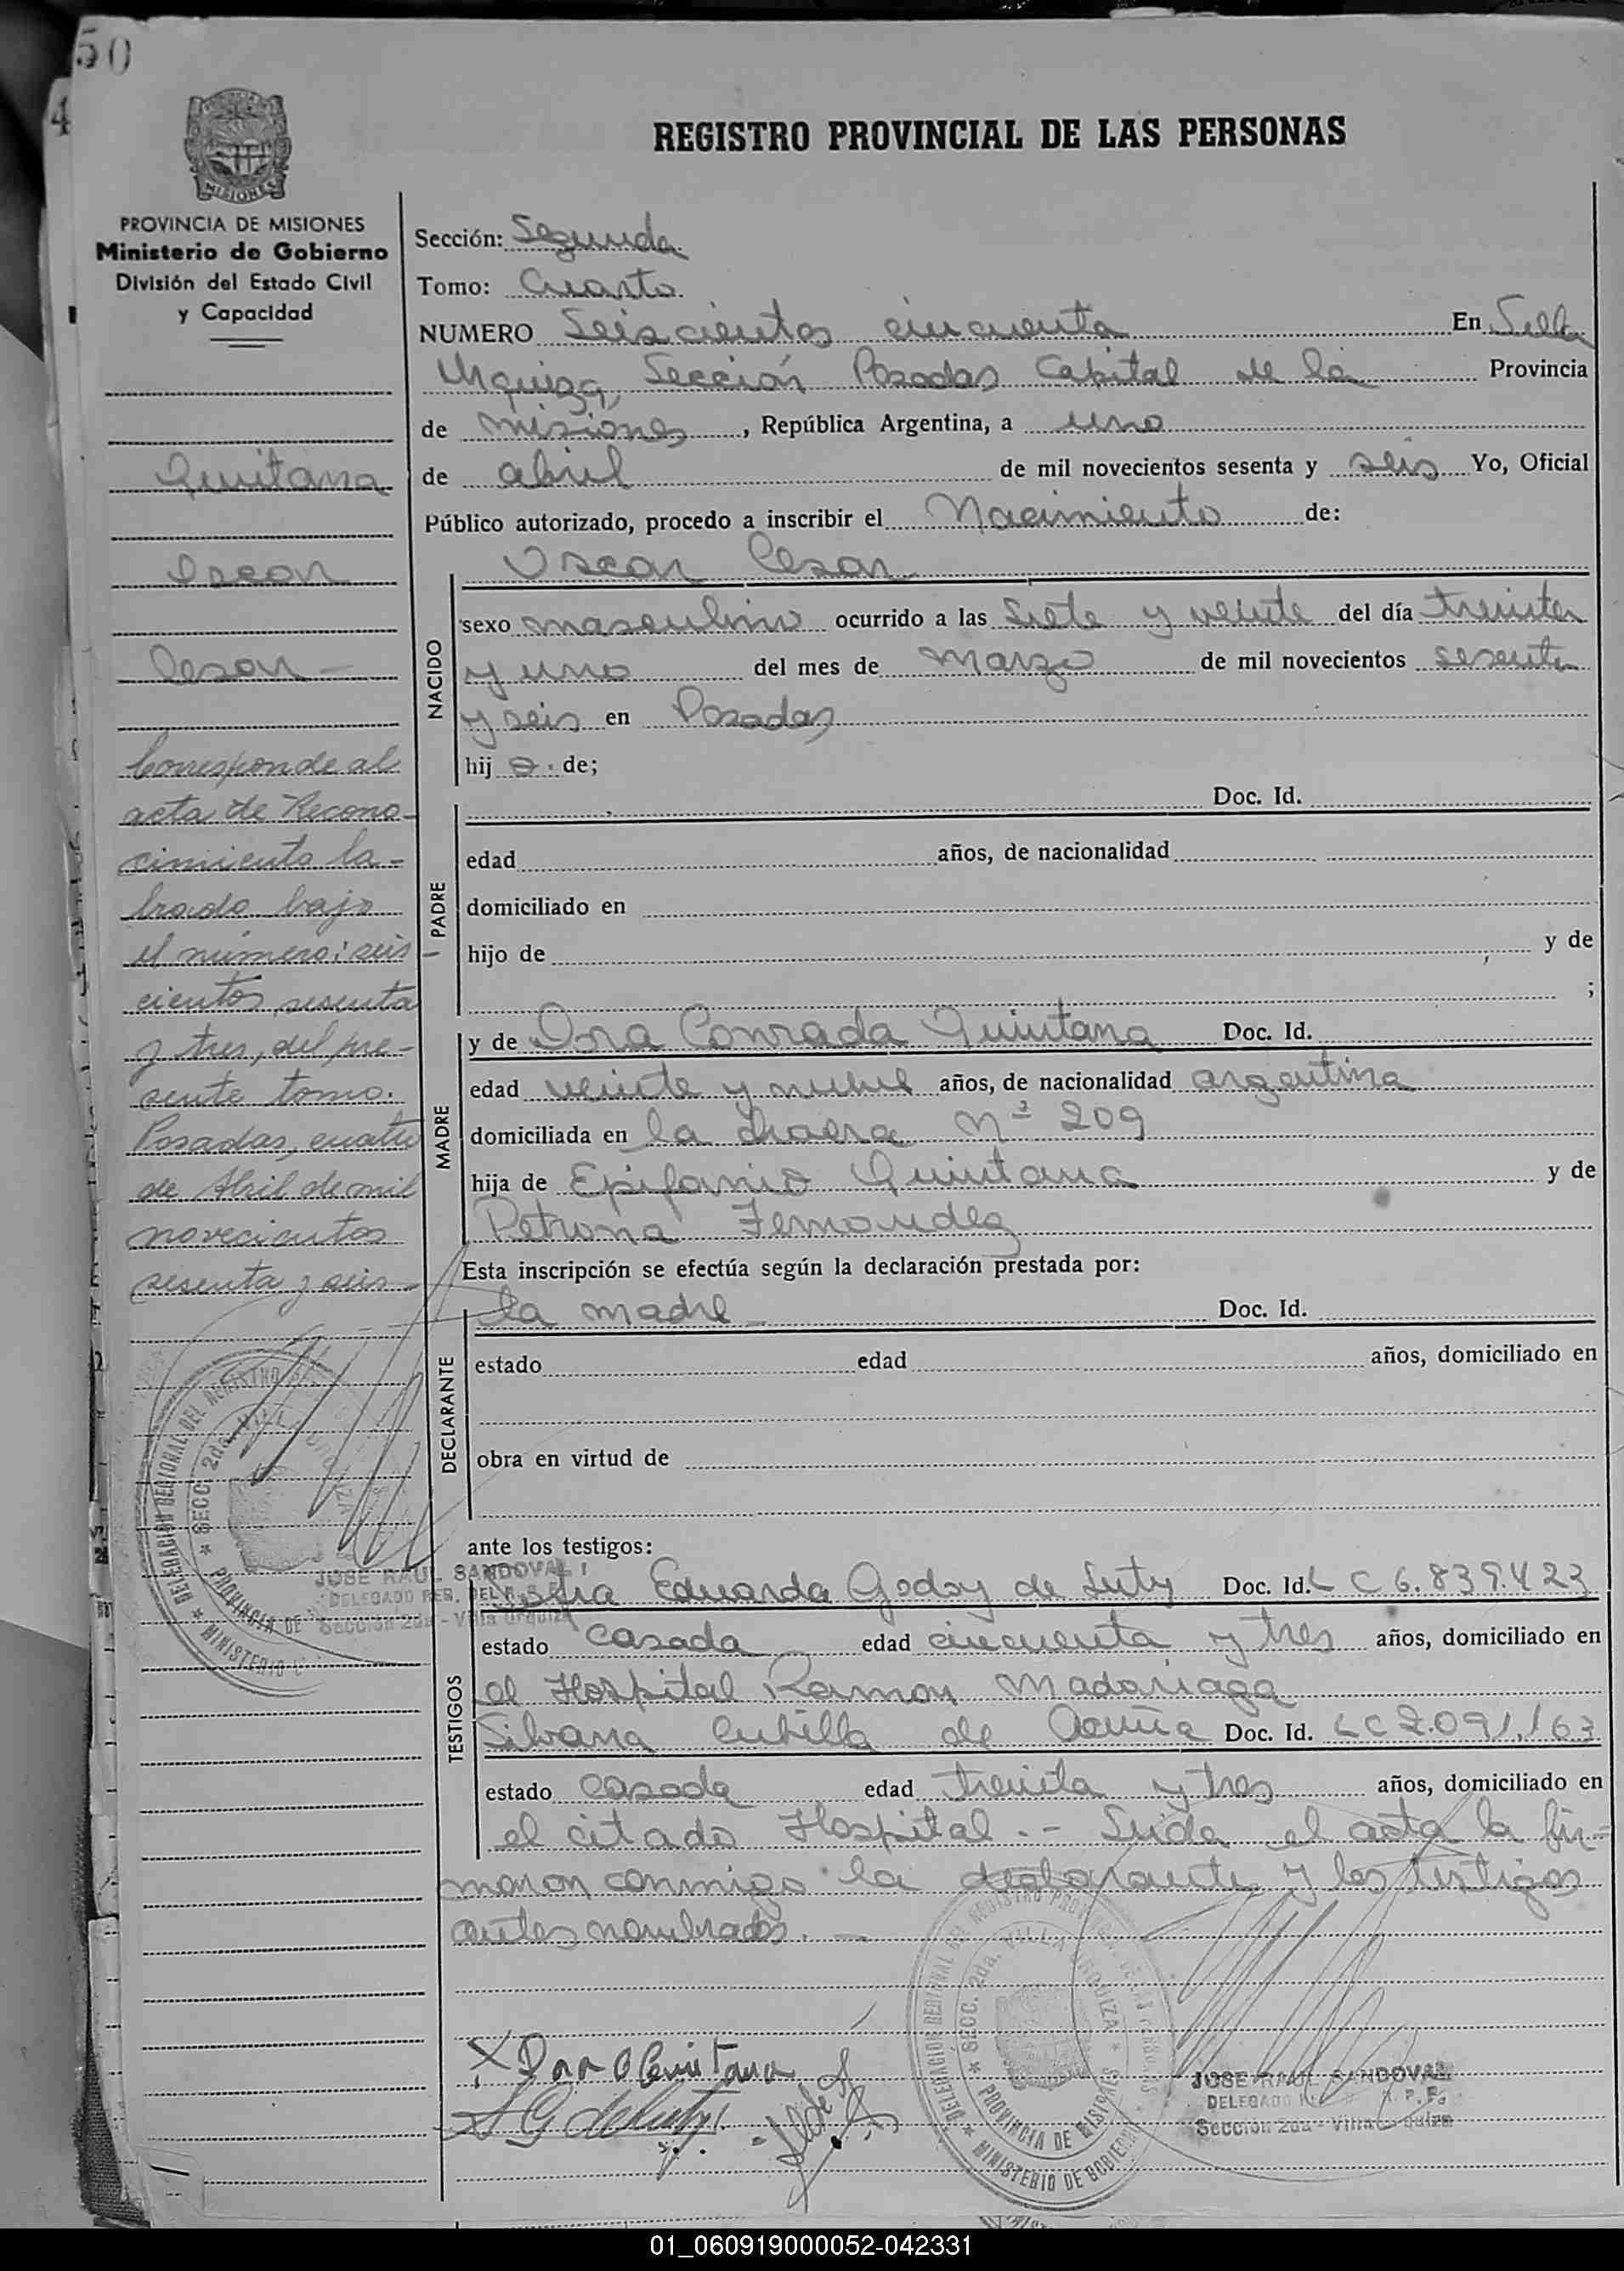 50
4
REGISTRO PROVINCIAL DE LAS PERSONAS
MISIONES
PROVINCIA DE MISIONES
Ministerio de Gobierno
División del Estado Civil
y Capacidad
Quintana
Oscar
Cesar –
Corresponde al
acta de Recono-
cimiento la-
brado bajo
el número: seis
cientos sesenta
y tres, del pre-
sente tomo.
Posadas, cuatro
de Abril de mil
novecientos
sesenta y seis
Sección: Segunda
Tomo: Cuarto.
NUMERO Seiscientos cincuenta En Villa
Urquiza, Sección Posadas Capital de la Provincia
de misiones, República Argentina, a uno
de abril de mil novecientos sesenta y seis Yo, Oficial
Público autorizado, procedo a inscribir el Nacimiento de:
Oscar Cesar
NACIDO
sexo masculino ocurrido a las Siete y veinte del día treinta
y uno del mes de Marzo de mil novecientos sesenta
y seis en Posadas
hij o de;
PADRE
Doc. Id.
edad años, de nacionalidad
domiciliado en
hijo de y de
;
MADRE
y de Dora Conrada Quintana Doc. Id.
edad veinte y nueve años, de nacionalidad argentina
domiciliada en la chacra Nº 209
hija de Epifanio Quintana y de
Petrona Fernandez
Esta inscripción se efectúa según la declaración prestada por:
DECLARANTE
la madre Doc. Id.
estado edad años, domiciliado en
obra en virtud de
ante los testigos:
TESTIGOS
Eduarda Godoy de Luty Doc. Id. L C 6.839.423
estado casada edad cincuenta y tres años, domiciliado en
el Hospital Ramon Madariaga
Silvana Cubilla de Acuña Doc. Id. L C 2.091.163
estado casada edad treinta y tres años, domiciliado en
el citado Hospital.- Leida el acta la fir=
maron conmigo la declarante y los testigos
antes nombrados. –
DELEGACION REGIONAL DEL REGISTRO
* SECC. 2da. VILLA URQUIZA
PROVINCIA DE
* MINISTERIO
JOSE RAUL SANDOVAL
DELEGADO REG. DEL R.
Sección 2da - Villa Urquiza
DELEGACION REGIONAL DEL REGISTRO
* SECC. 2da. VILLA URQUIZA *
PROVINCIA DE MISIONES
* MINISTERIO DE GOBIERNO
JOSE RAUL SANDOVAL
DELEGADO R. P. P.
Sección 2da - Villa Urquiza
01_060919000052-042331